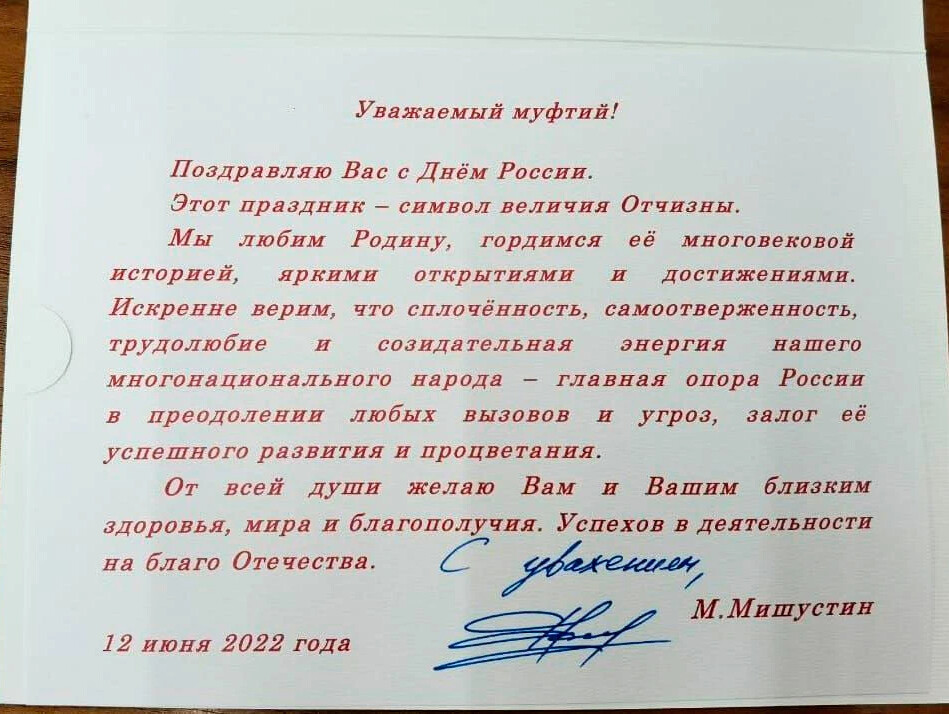 Уважаемый муфтий!
Поздравляю Вас с Днём России.
Этот праздник – символ величия Отчизны.
Мы любим Родину, гордимся её многовековой
историей, яркими открытиями и достижениями.
Искренне верим, что сплочённость, самоотверженность,
трудолюбие и созидательная энергия нашего
многонационального народа – главная опора России
в преодолении любых вызовов и угроз, залог её
успешного развития и процветания.
От всей души желаю Вам и Вашим близким
здоровья, мира и благополучия. Успехов в деятельности
на благо Отечества.
С уважением,
М.Мишустин
12 июня 2022 года